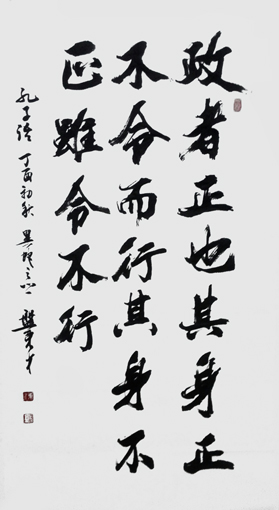 政者正也其身正
不令而行其身不
正雖令不行
孔子語 丁酉初秋